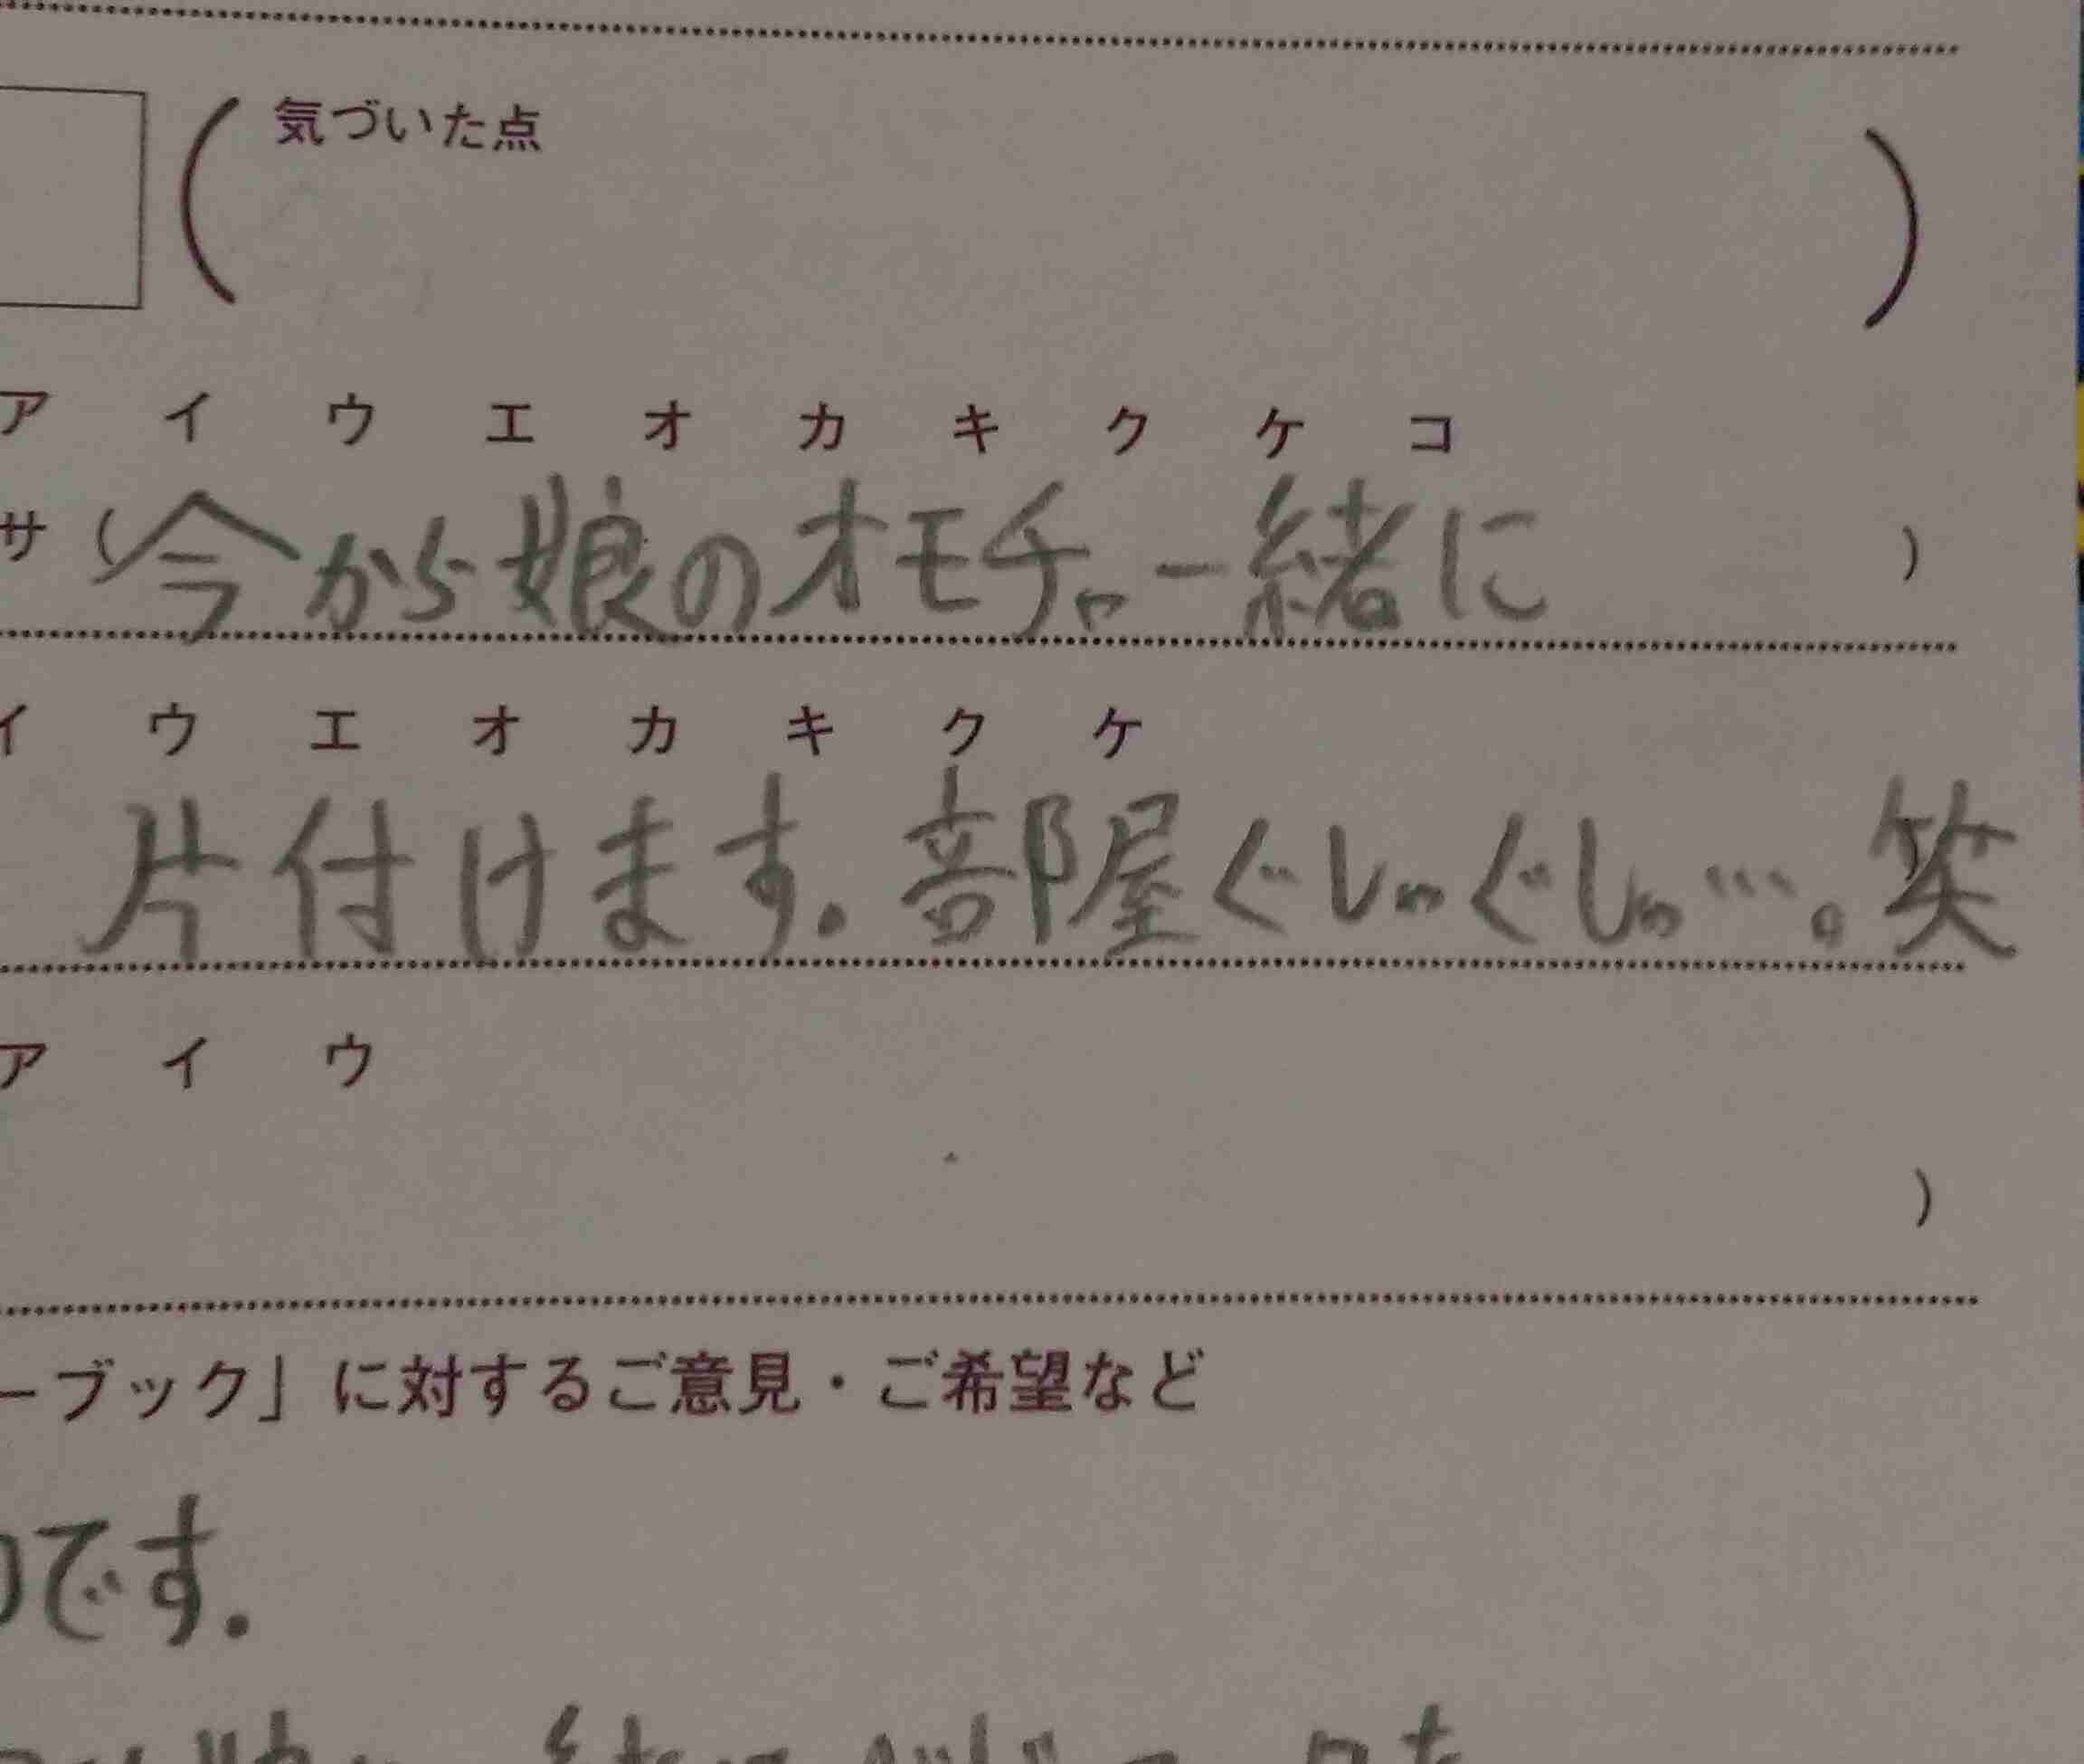 気づいた点
ア イ ウ エ オ カ キ ク ケ コ
サ (今から娘のオモチャ一緒に )
イ ウ エ オ カ キ ク ケ
片付けます.部屋ぐしゃぐしゃ…。笑
ア イ ウ
)
ーブック」に対するご意見・ご希望など
です.